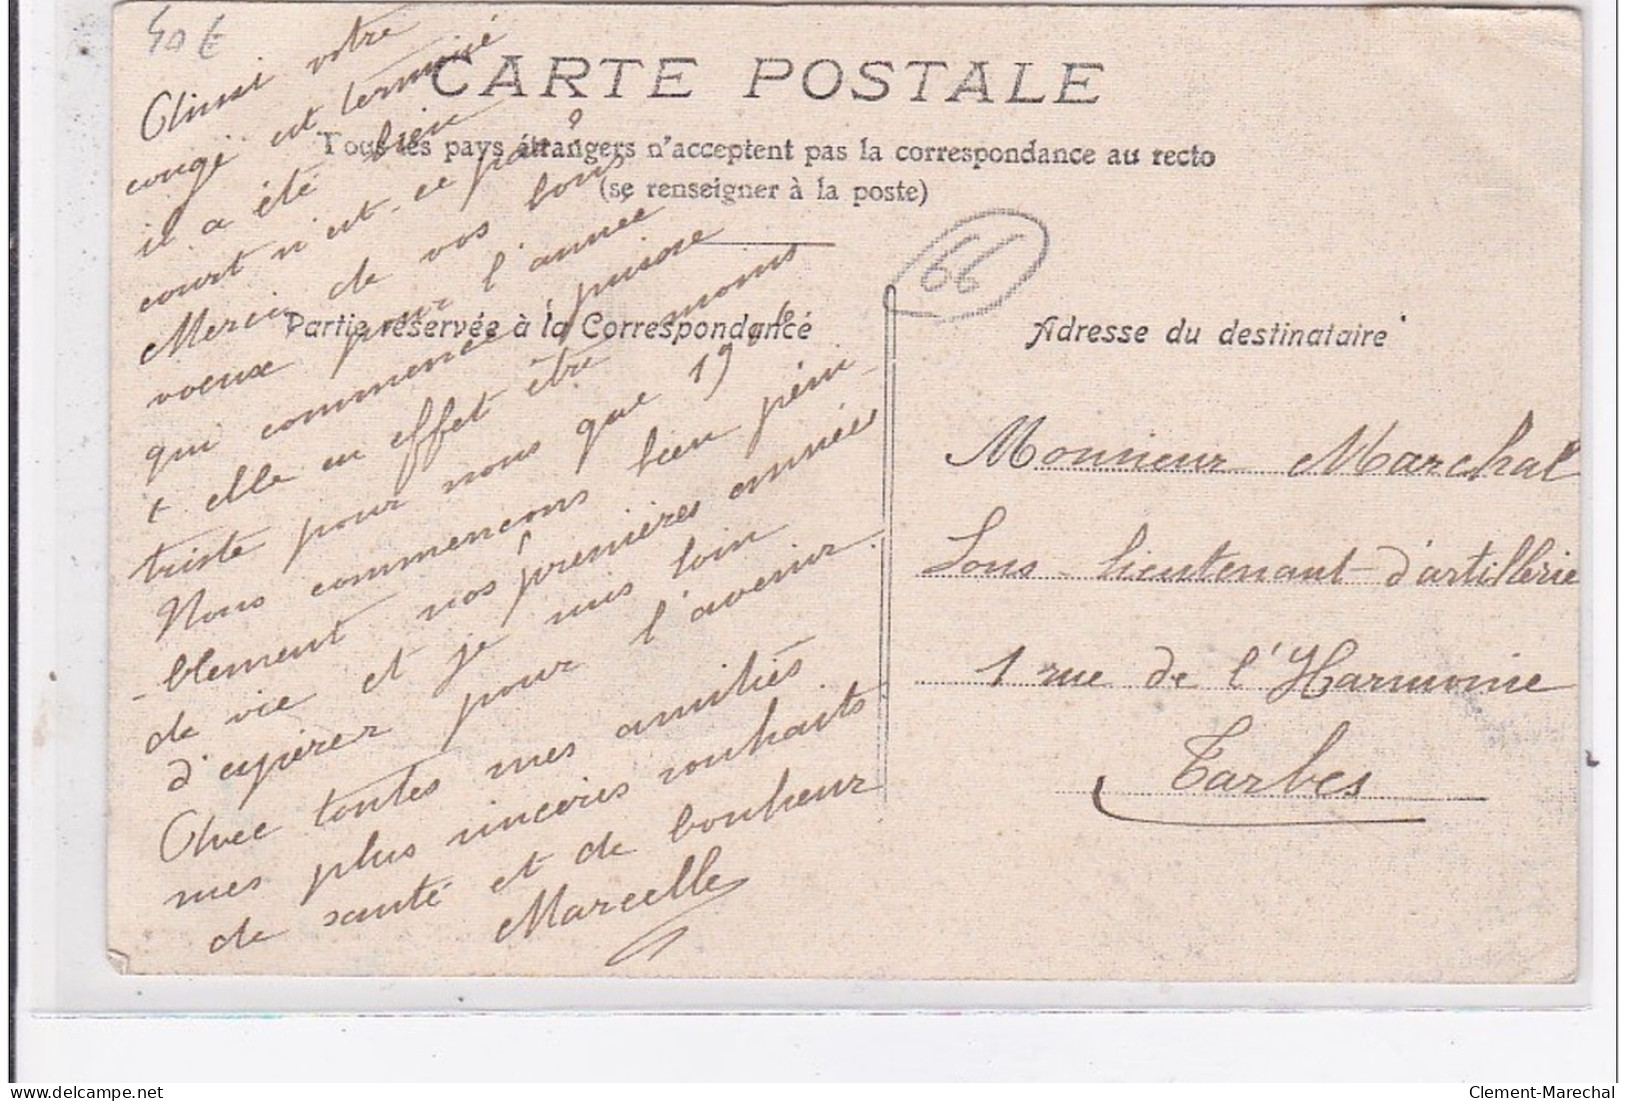 40 €
CARTE POSTALE
Tous les pays étrangers n'acceptent pas la correspondance au recto
(se renseigner à la poste)
Partie réservée à la Correspondance
Ainsi votre
congé est terminé
il a été bien
court n'est-ce pas ?
Merci de vos bons
voeux pour l'année
qui commence, puisse
t elle en effet être moins
triste pour nous que 19
Nous commençons bien péni-
-blement nos premières années
de vie et je suis loin
d'espérer pour l'avenir.
Avec toutes mes amitiés
mes plus sincères souhaits
de santé et de bonheur
Marcelle
66
Adresse du destinataire
Monsieur Marchal
Sous-lieutenant d'artillerie
1 rue de l'Harmonie
Tarbes
delcampe.net
Clement-Marechal